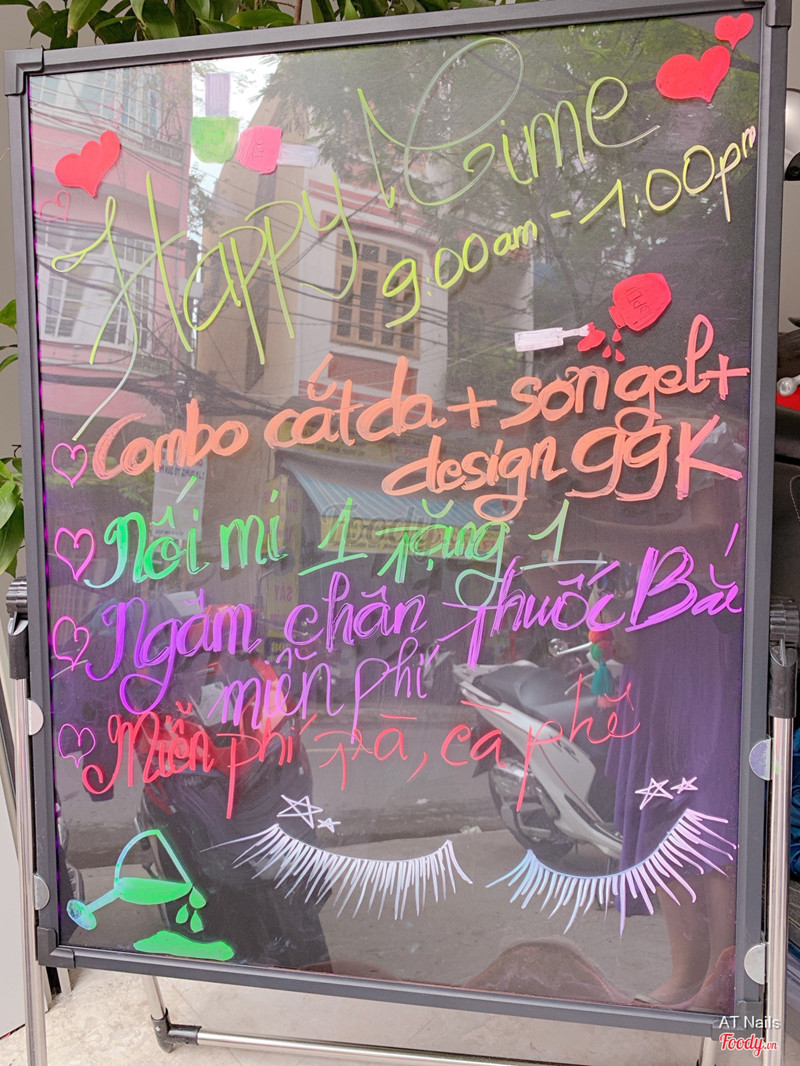 Happy Time
9:00am - 1:00pm
Combo cắt da + sơn gel +
design 99K
Nối mi 1 tặng 1
Ngâm chân thuốc Bắc
miễn phí
Miễn phí trà, cà phê
AT Nails
Foody.vn